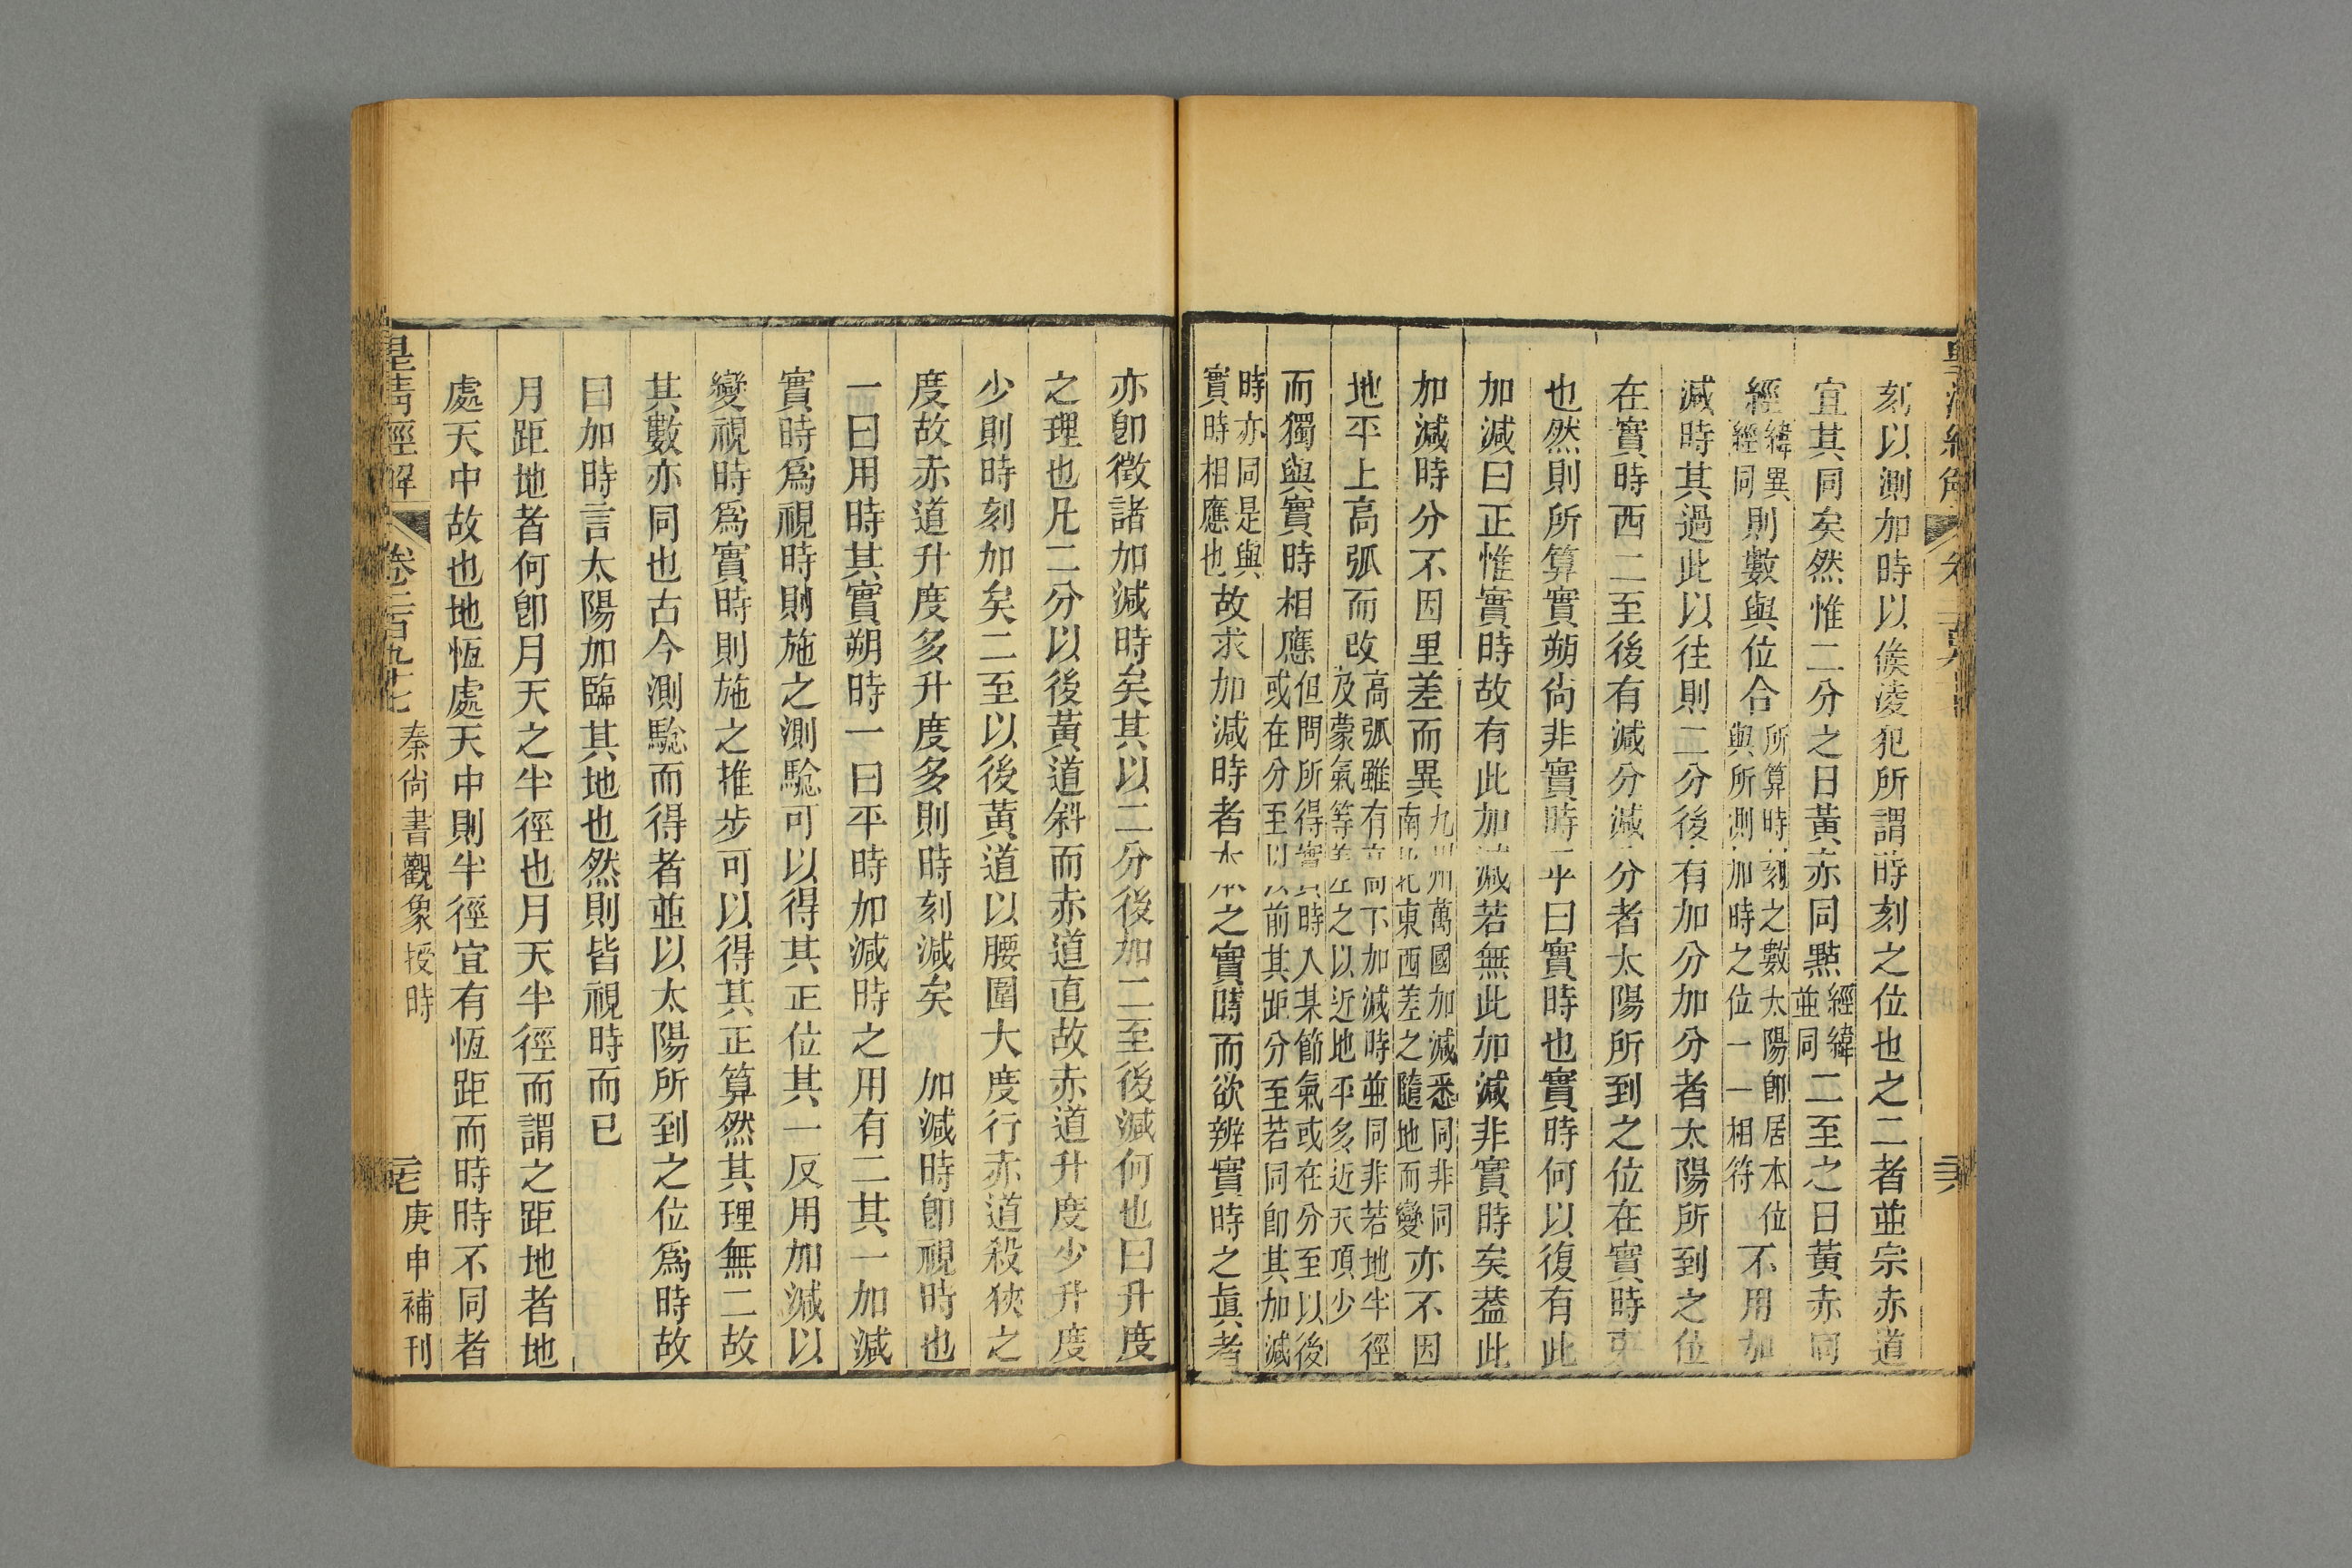 刻以測加時以候淩犯所謂時刻之位也之二者並宗赤道
宜其同矣然惟二分之日黃赤同㸃經緯並同二至之日黃赤同
經緯異經同則數與位合所算時刻之數太陽卽居本位與所測加時之位一一相符不用加
減時其過此以往則二分後有加分加分者太陽所到之位
在實時西二至後有減分減分者太陽所到之位在實時東
也然則所算實朔尙非實時乎曰實時也實時何以復有此
加減曰正惟實時故有此加減若無此加減非實時矣葢此
加減時分不因里差而異九州萬國加減悉同非同南北東西差之隨地而變亦不因
地平上高弧而改高弧雖有高下加減時並同非若地半徑及蒙氣等差之以近地平多近天頂少
而獨與實時相應但問所得實時入某節氣或在分至以後或在分至以前其距分至若同卽其加減
時亦同是與實時相應也故求加減時者本之實時而欲辨實時之眞者
亦卽徵諸加減時矣其以二分後加二至後減何也曰升度
之理也凡二分以後黃道斜而赤道直故赤道升度少升度
少則時刻加矣二至以後黃道以腰圍大度行赤道殺狹之
度故赤道升度多升度多則時刻減矣　加減時卽視時也
一曰用時其實朔時一曰平時加減時之用有二其一加減
實時爲視時則施之測騐可以得其正位其一反用加減以
變視時爲實時則施之推步可以得其正算然其理無二故
其數亦同也古今測騐而得者並以太陽所到之位爲時故
曰加時言太陽加臨其地也然則皆視時而已
月距地者何卽月天之半徑也月天半徑而謂之距地者地
處天中故也地恆處天中則半徑宜有恆距而時時不同者
皇清經解　卷二百九十七　秦尙書觀象授時　庚申補刊